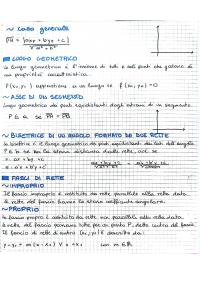 ~ CASO generale
PH = |ax₁ + by₁ + c|
√a² + b²
LUOGO GEOMETRICO
Il luogo geometrico è l'insieme di tutti e soli punti che godono di
una proprietà caratteristica.
P(x₁, y₁) appartiene a un luogo se f(x₁, y₁) = 0
~ ASSE DI UN SEGMENTO
Luogo geometrico dei punti equidistanti dagli estremi di un segmento.
P ∈ a se PA = PB
~ BISETTRICE DI UN ANGOLO FORMATO DA DUE RETTE
la bisettrice è il luogo geometrico dei punti equidistanti dai lati dell'angolo
P ∈ b se ha la stessa distanza dalle rette, cioè se
r: ax + by + c
s: a'x + b'y + c'
FASCI DI RETTE
~ IMPROPRIO
Il fascio improprio è costituito da rette parallele alla retta data
le rette del fascio hanno lo stesso coefficiente angolare.
~ PROPRIO
Il fascio proprio è costituito da rette non parallele alla retta data.
le rette del fascio passano tutte per un punto P, detto centro del fascio
Il fascio di rette di centro (x₁, y₁) è descritto da:
y - y₁ = m(x - x₁) V x = x₁ con m ∈ R